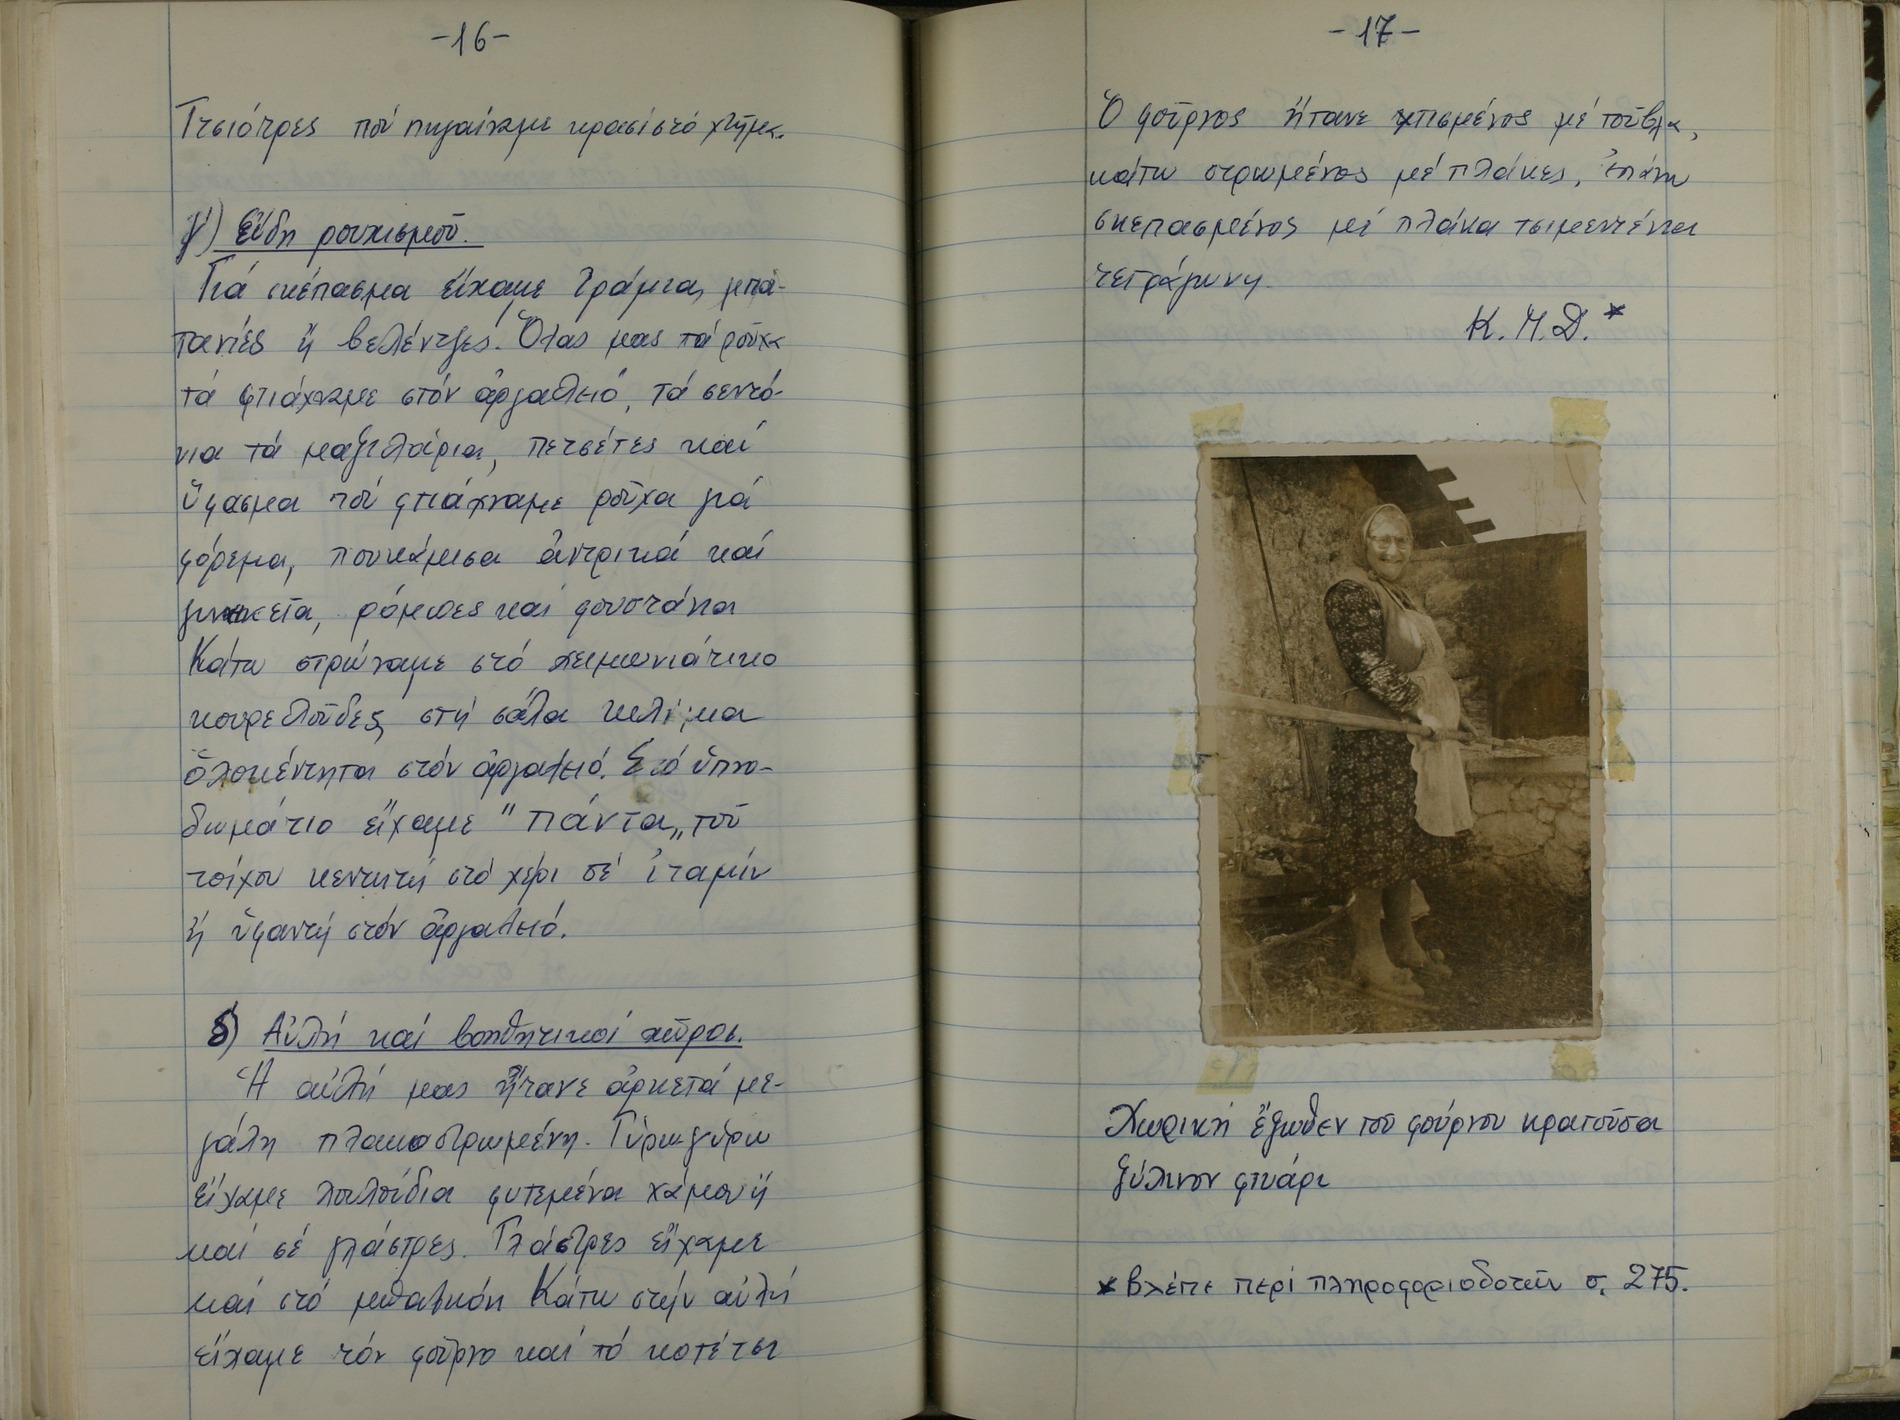 -16-
Τσιότρες πού πηγαίναμε κρασί στό χτῆμα.
γ) Εἴδη ρουχισμοῦ.
Γιά σκέπασμα εἴχαμε τράμια, μπα-
τανίες ἤ βελέντζες. Ὅλας μας τά ροῦχα
τά φτιάχναμε στόν ἀργαλειό, τά σεντό-
νια τά μαξιλάρια, πετσέτες καί
ὕφασμα πού φτιάχναμε ροῦχα γιά
φόρεμα, πουκάμισα ἀντρικά καί
γυναικεῖα, ρόμπες καί φουστάνια
Κάτω στρώναμε στό χειμωνιάτικο
κουρελοῦδες, στή σάλα κιλίμια
ὁλοκέντητα στόν ἀργαλειό. Στό ὑπνο-
δωμάτιο εἴχαμε "πάντα" τοῦ
τοίχου κεντητή στό χέρι σέ ἐταμίν
ἤ ὑφαντή στόν ἀργαλειό.
δ) Αὐλή καί βοηθητικοί χῶροι.
Ἡ αὐλή μας ἤτανε ἀρκετά με-
γάλη πλακοστρωμένη. Γύρω γύρω
εἴχαμε λουλούδια φυτεμένα χάμου ἤ
καί σέ γλάστρες. Γλάστρες εἴχαμε
καί στό μπαλκόνι Κάτω στήν αὐλή
εἴχαμε τόν φοῦρνο καί τό κοτέτσι
-17-
Ὁ φοῦρνος ἤτανε χτισμένος μέ τοῦβλα,
κάτω στρωμένος μέ πλάκες, ἐπάνω
σκεπασμένος μέ πλάκα τσιμεντένια
τετράγωνη.
Κ. Μ. Δ. *
Χωρική ἔξωθεν τοῦ φούρνου κρατοῦσα
ξύλινον φτυάρι
* Βλέπε περί πληροφοριοδοτῶν σ. 275.